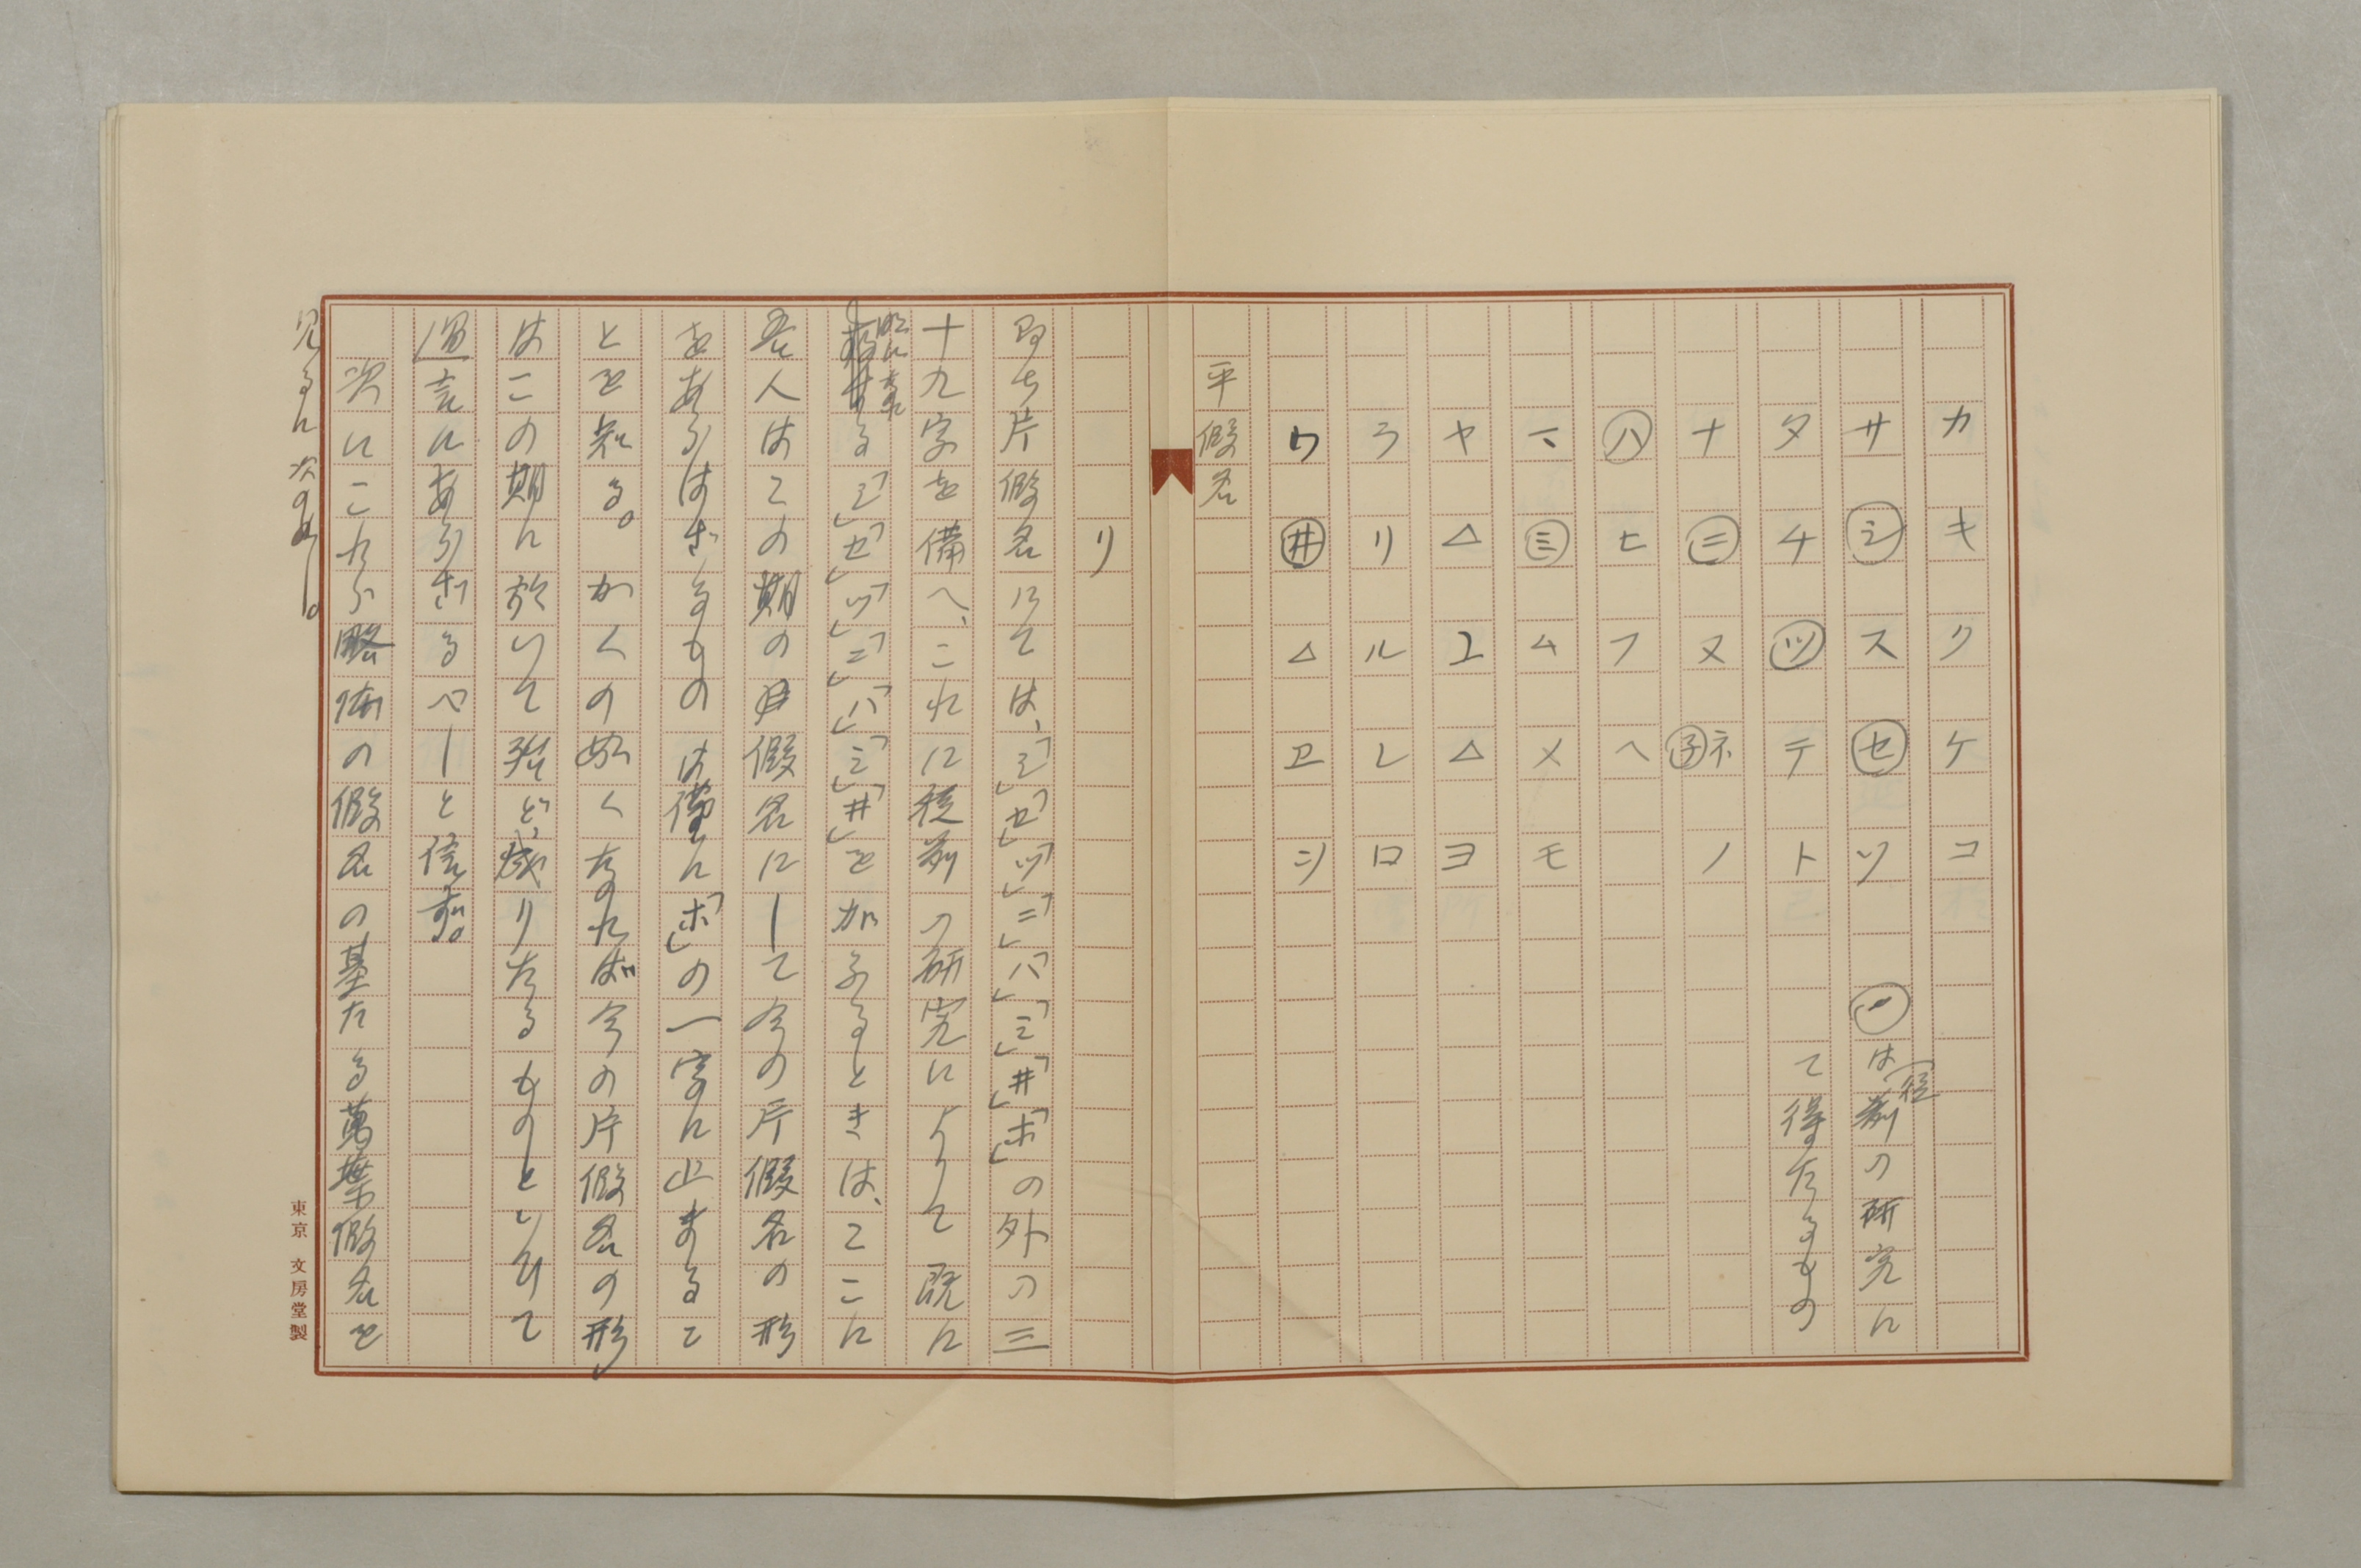 カ キ ク ケ コ
サ シ ス セ ソ ○は從前の研究に
タ チ ツ テ ト て得たるもの
ナ ニ ヌ 子 ネ ノ
ハ ヒ フ ヘ
マ ミ ム メ モ
ヤ △ ユ △ ヨ
ラ リ ル レ ロ
ワ 井 △ ヱ シ
平假名
リ
即ち片假名にては、「シ」「セ」「ツ」「ニ」「ハ」「ミ」「井」「ホ」の外の三
十九字を備へ、これに從前の研究によりて既に
る「シ」「セ」「ツ」「ニ」「ハ」「ミ」「井」を加ふるときは、こゝに
吾人はこの期の假名にして今の片假名の形
をあらはさゞるものは僅に「ホ」の一字に止まるこ
とを知る。かくの如くなれば今の片假名の形
はこの期に於いて殆ど成りたるものといひて
過言にあらざるべしと信ず。
次にこれら略体の假名の基たる萬葉假名を
見るに次の如し。
東京 文房堂製